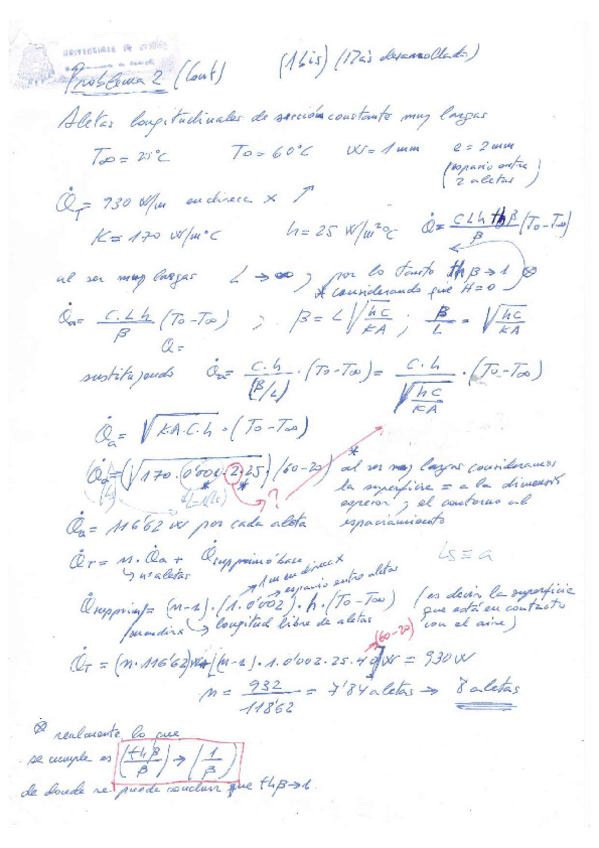 Problema 2 (Cont) (1 bis) (Más desarrollada)
Aletas longitudinales de sección constante muy largas
T∞ = 25°C To = 60°C w = 1 mm e = 2 mm
(espacio entre 2 aletas)
Q̇T = 930 W/m en direcc x
K = 170 W/m°C h = 25 W/m²°C Q̇ = C L h th β / β (To - T∞)
al ser muy largas L → ∞ ; por lo tanto th β → 1 ⊗
* considerando que H = 0
Q̇a = C.L.h / β (To - T∞) ; β = L √(hC/KA) ; β/L = √(hC/KA)
Q̇ =
sustituyendo Q̇a = C.h / (β/L) · (To - T∞) = C.h / √(hC/KA) · (To - T∞)
Q̇a = √(K.A.C.h) · (To - T∞)
Q̇a = (√(170 · 0'001 · 2 · 25)) (60 - 20) * al ser muy largas consideramos
→ ? la superficie = a la dimensión
espesor ; el contorno al
espaciamiento
Q̇a = 116'62 W por cada aleta
Ls = a
Q̇T = n · Q̇a + Q̇supprim ó base
↳ nº aletas
1m en direcc x
espacio entre aletas
Q̇supprim = (n-1) · (1 · 0'002) · h · (To - T∞) (es decir la superficie
que está en contacto
con el aire)
longitud libre de aletas
(60-20)
Q̇T = (n · 116'62) + [(n-1) · 1 · 0'002 · 25 · 40] W = 930 W
n = 932 / 118'62 = 7'84 aletas → 8 aletas
⊗ realmente lo que
se cumple es (th β / β) → (1 / β)
de donde se puede concluir que th β → 1.